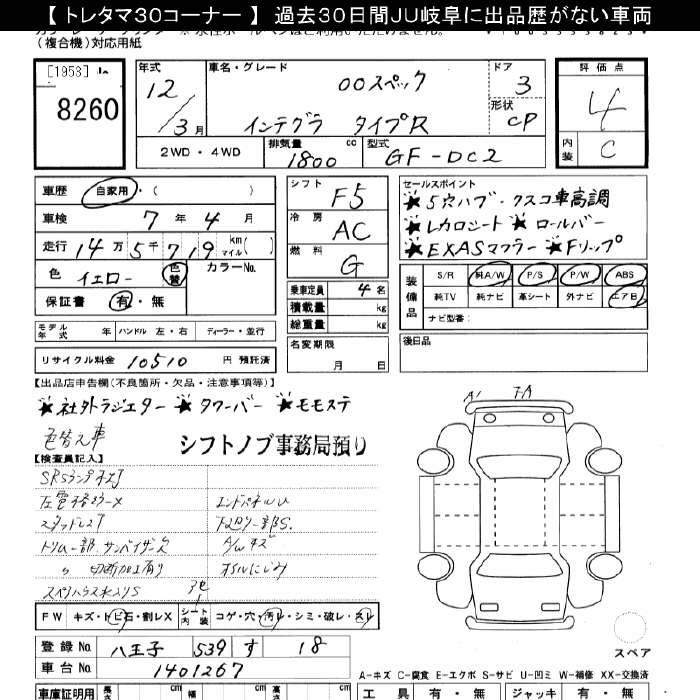 【 トレタマ３０コーナー 】 過去３０日間ＪＵ岐阜に出品歴がない車両
(複合機)対応用紙
[1953]
8260
年式
12／3月
車名・グレード
00スペック
インテグラ タイプR
ドア
3
形状
CP
評価点
4
内装
C
2WD ・ 4WD
排気量
1800
cc
型式
GF-DC2
車歴
自家用 ・ ( )
車検
7 年 4 月
走行
14 万 5 千 719 km マイル
色
イエロー
色替
カラーNo.
保証書
有 ・ 無
モデル年式
年
ハンドル 左・右
ディーラー・並行
リサイクル料金
10510
円 預託済
シフト
F5
冷房
AC
燃料
G
乗車定員
4 名
積載量
kg
総重量
kg
名変期限
月 日
セールスポイント
★5穴ハブ・クスコ車高調
★レカロシート ★ロールバー
★EXASマフラー ★Fリップ
装備品
S/R 純A/W P/S P/W ABS
純TV 純ナビ 革シート 外ナビ エアB
ナビ型番：
後日品
【出品店申告欄(不良箇所・欠品・注意事項等)】
★社外ラジエター ★タワーバー ★モモステ
色替え車
シフトノブ事務局預り
【検査員記入】
エンドパネルU
A/Wキズ
オイルにじみ
切断加工有り
A1
FA
FW
キズ・トビ石・割レX
シート内装
コゲ・穴・汚レ・シミ・破レ・スレ
登録No
八王子 539 す 18
車台No
1401267
スペア
A-キズ C-腐食 E-エクボ S-サビ U-凹ミ W-補修 XX-交換済
車庫証明用
長さ
cm
幅
cm
高さ
cm
工具
有 ・ 無
ジャッキ
有 ・ 無